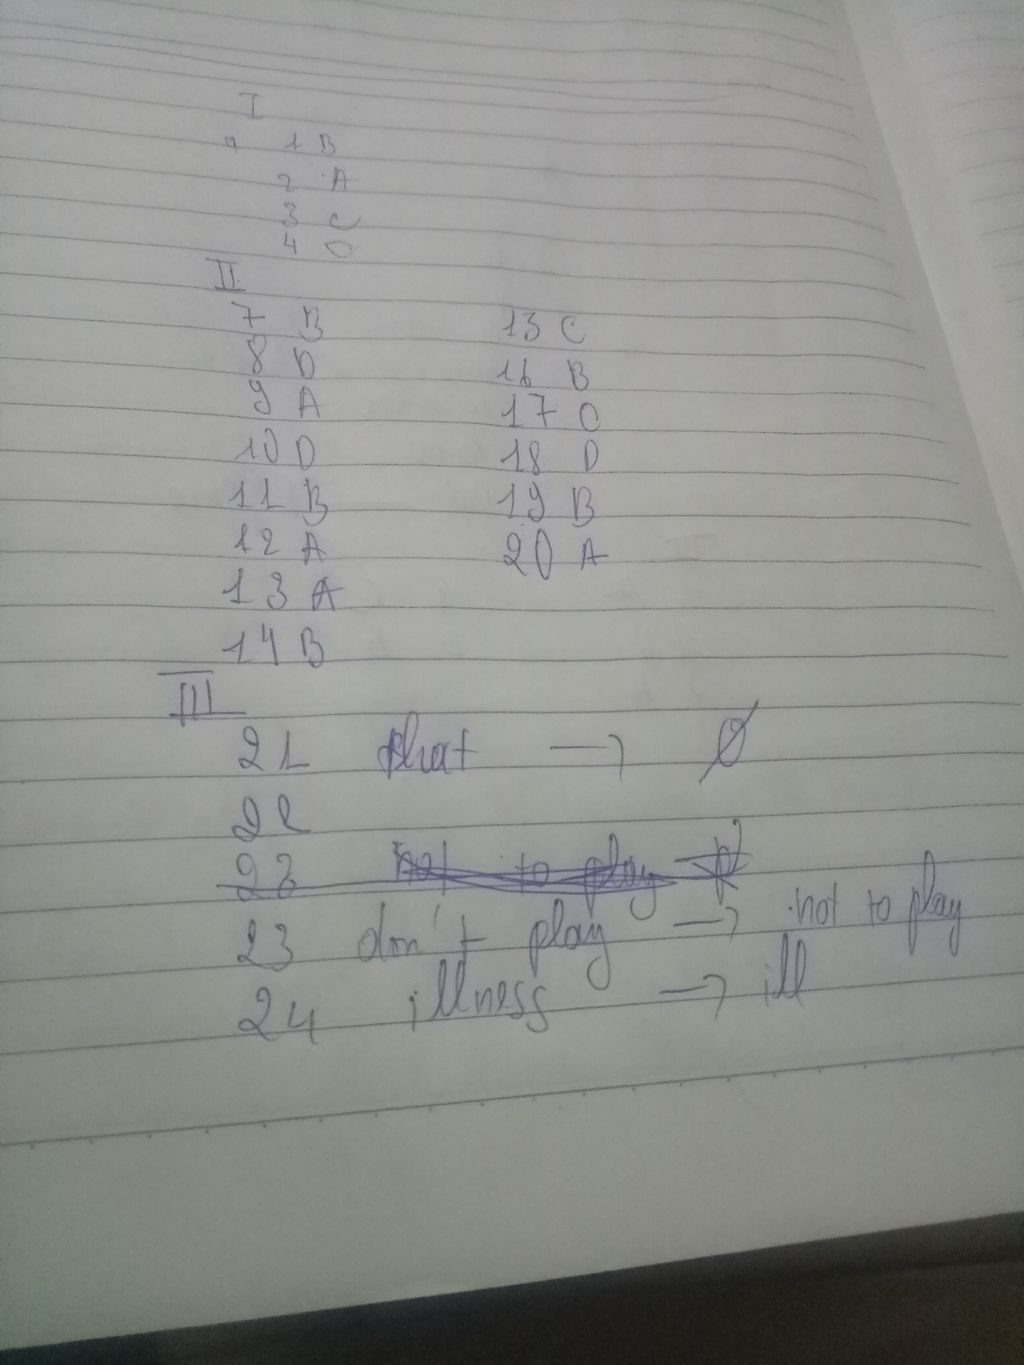 I
a 1 B
2 A
3 C
4 C
II
7 B
8 D
9 A
10 D
11 B
12 A
13 A
14 B
13 C
16 B
17 C
18 D
19 B
20 A
III
21 that → Ø
22
23 don't play → not to play
24 illness → ill